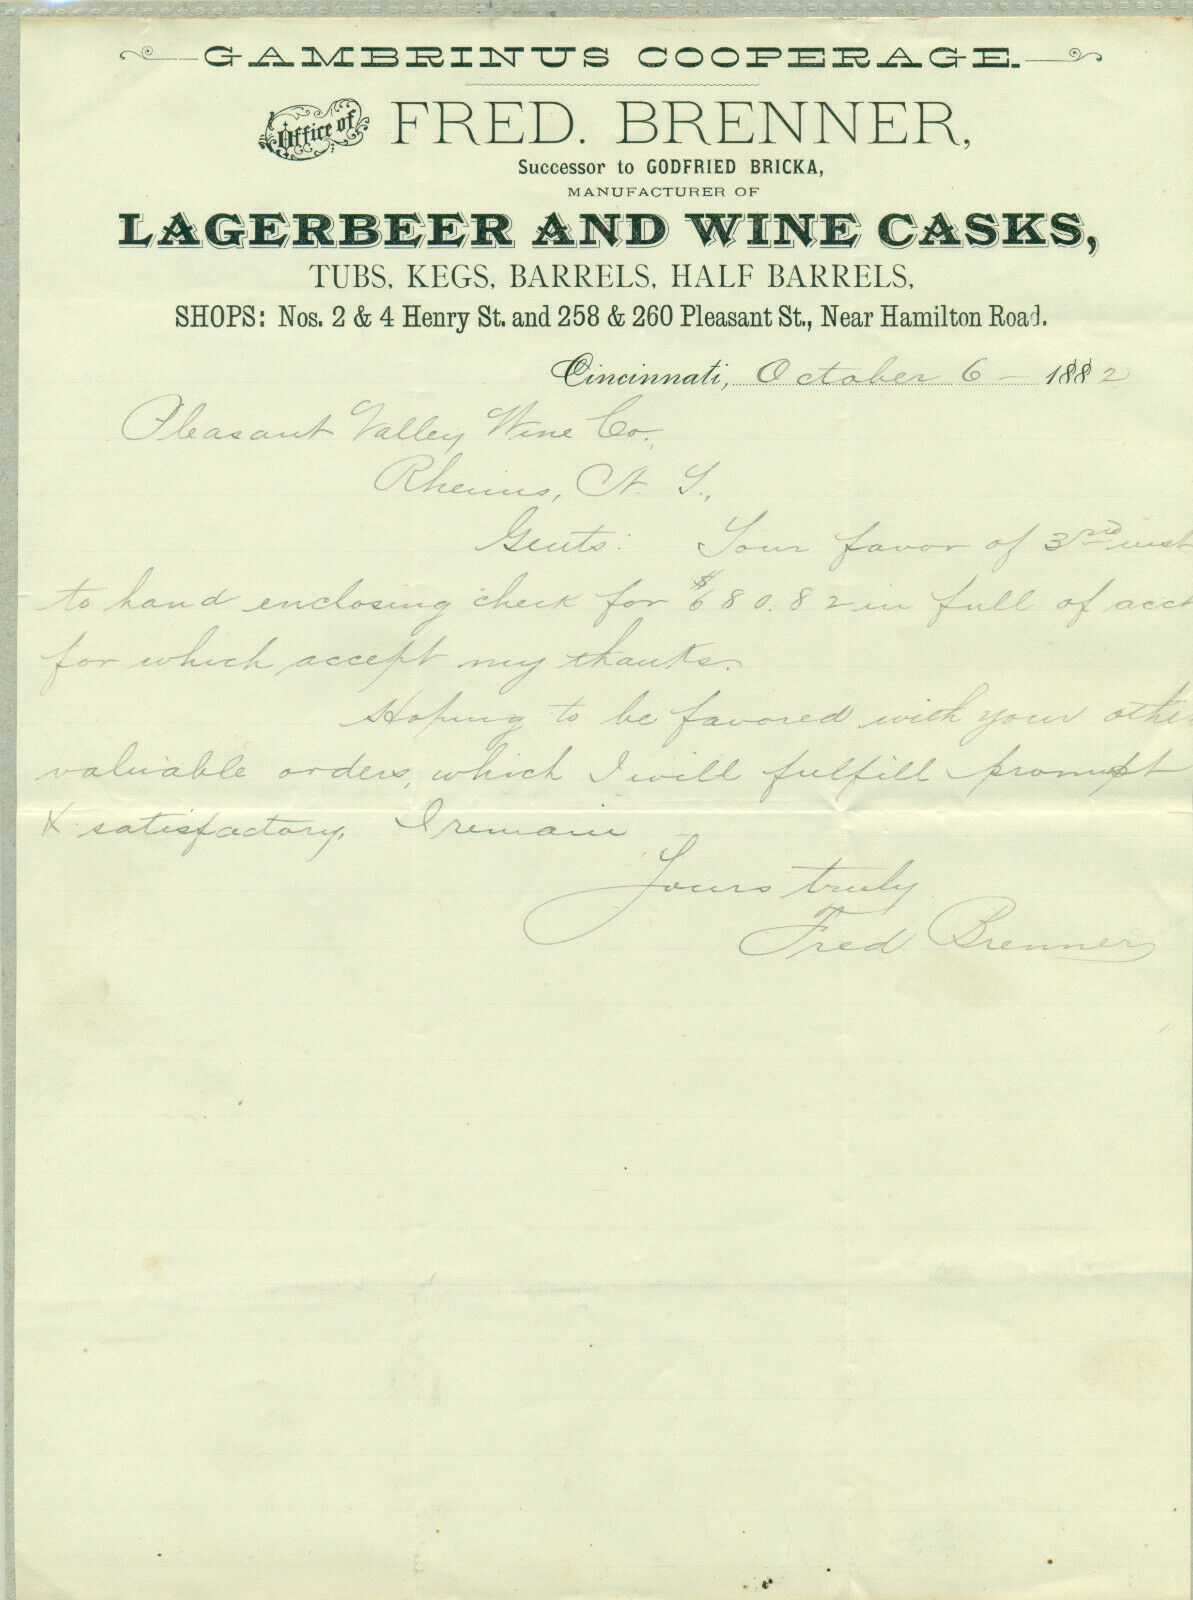 GAMBRINUS COOPERAGE.
Office of FRED. BRENNER,
Successor to GODFRIED BRICKA,
MANUFACTURER OF
LAGERBEER AND WINE CASKS,
TUBS, KEGS, BARRELS, HALF BARRELS,
SHOPS: Nos. 2 & 4 Henry St. and 258 & 260 Pleasant St., Near Hamilton Road.
Cincinnati, October 6 - 1882
Pleasant Valley Wine Co.,
Rheims, N. Y.,
Gents: Your favor of 3rd inst
to hand enclosing check for $680.82 in full of acct
for which accept my thanks.
Hoping to be favored with your other
valuable orders, which I will fulfill prompt
& satisfactory, I remain
Yours truly
Fred Brenner